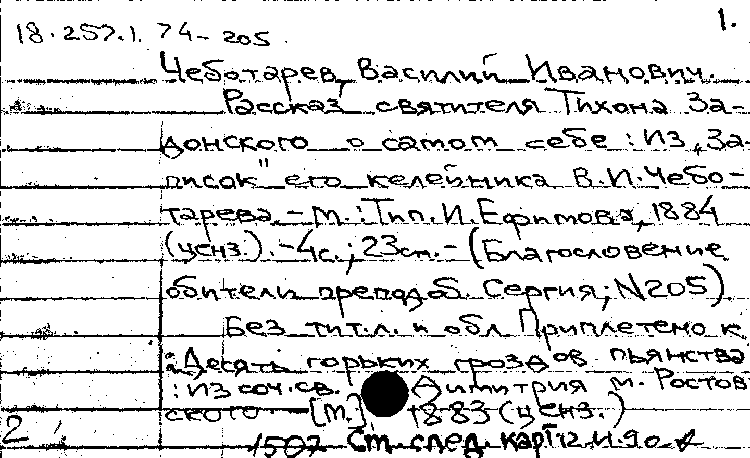 1.
18.257.1.74-205.
Чеботарев, Василий Иванович.
Рассказ святителя Тихона За-
донского о самом себе: Из „За-
писок" его келейника В.И.Чебо-
тарева. - М.: Тип. И. Ефимова, 1884
(ценз.). - 4с.; 23см. - (Благословение
обители преподоб. Сергия; N205)
Без тит.л. и обл Приплетено к
: Десять горьких гроздов пьянства
: Из соч. св. Димитрия м. Ростов
ского - [М.] 1883 (ценз.)
2 1507 См. след. карт